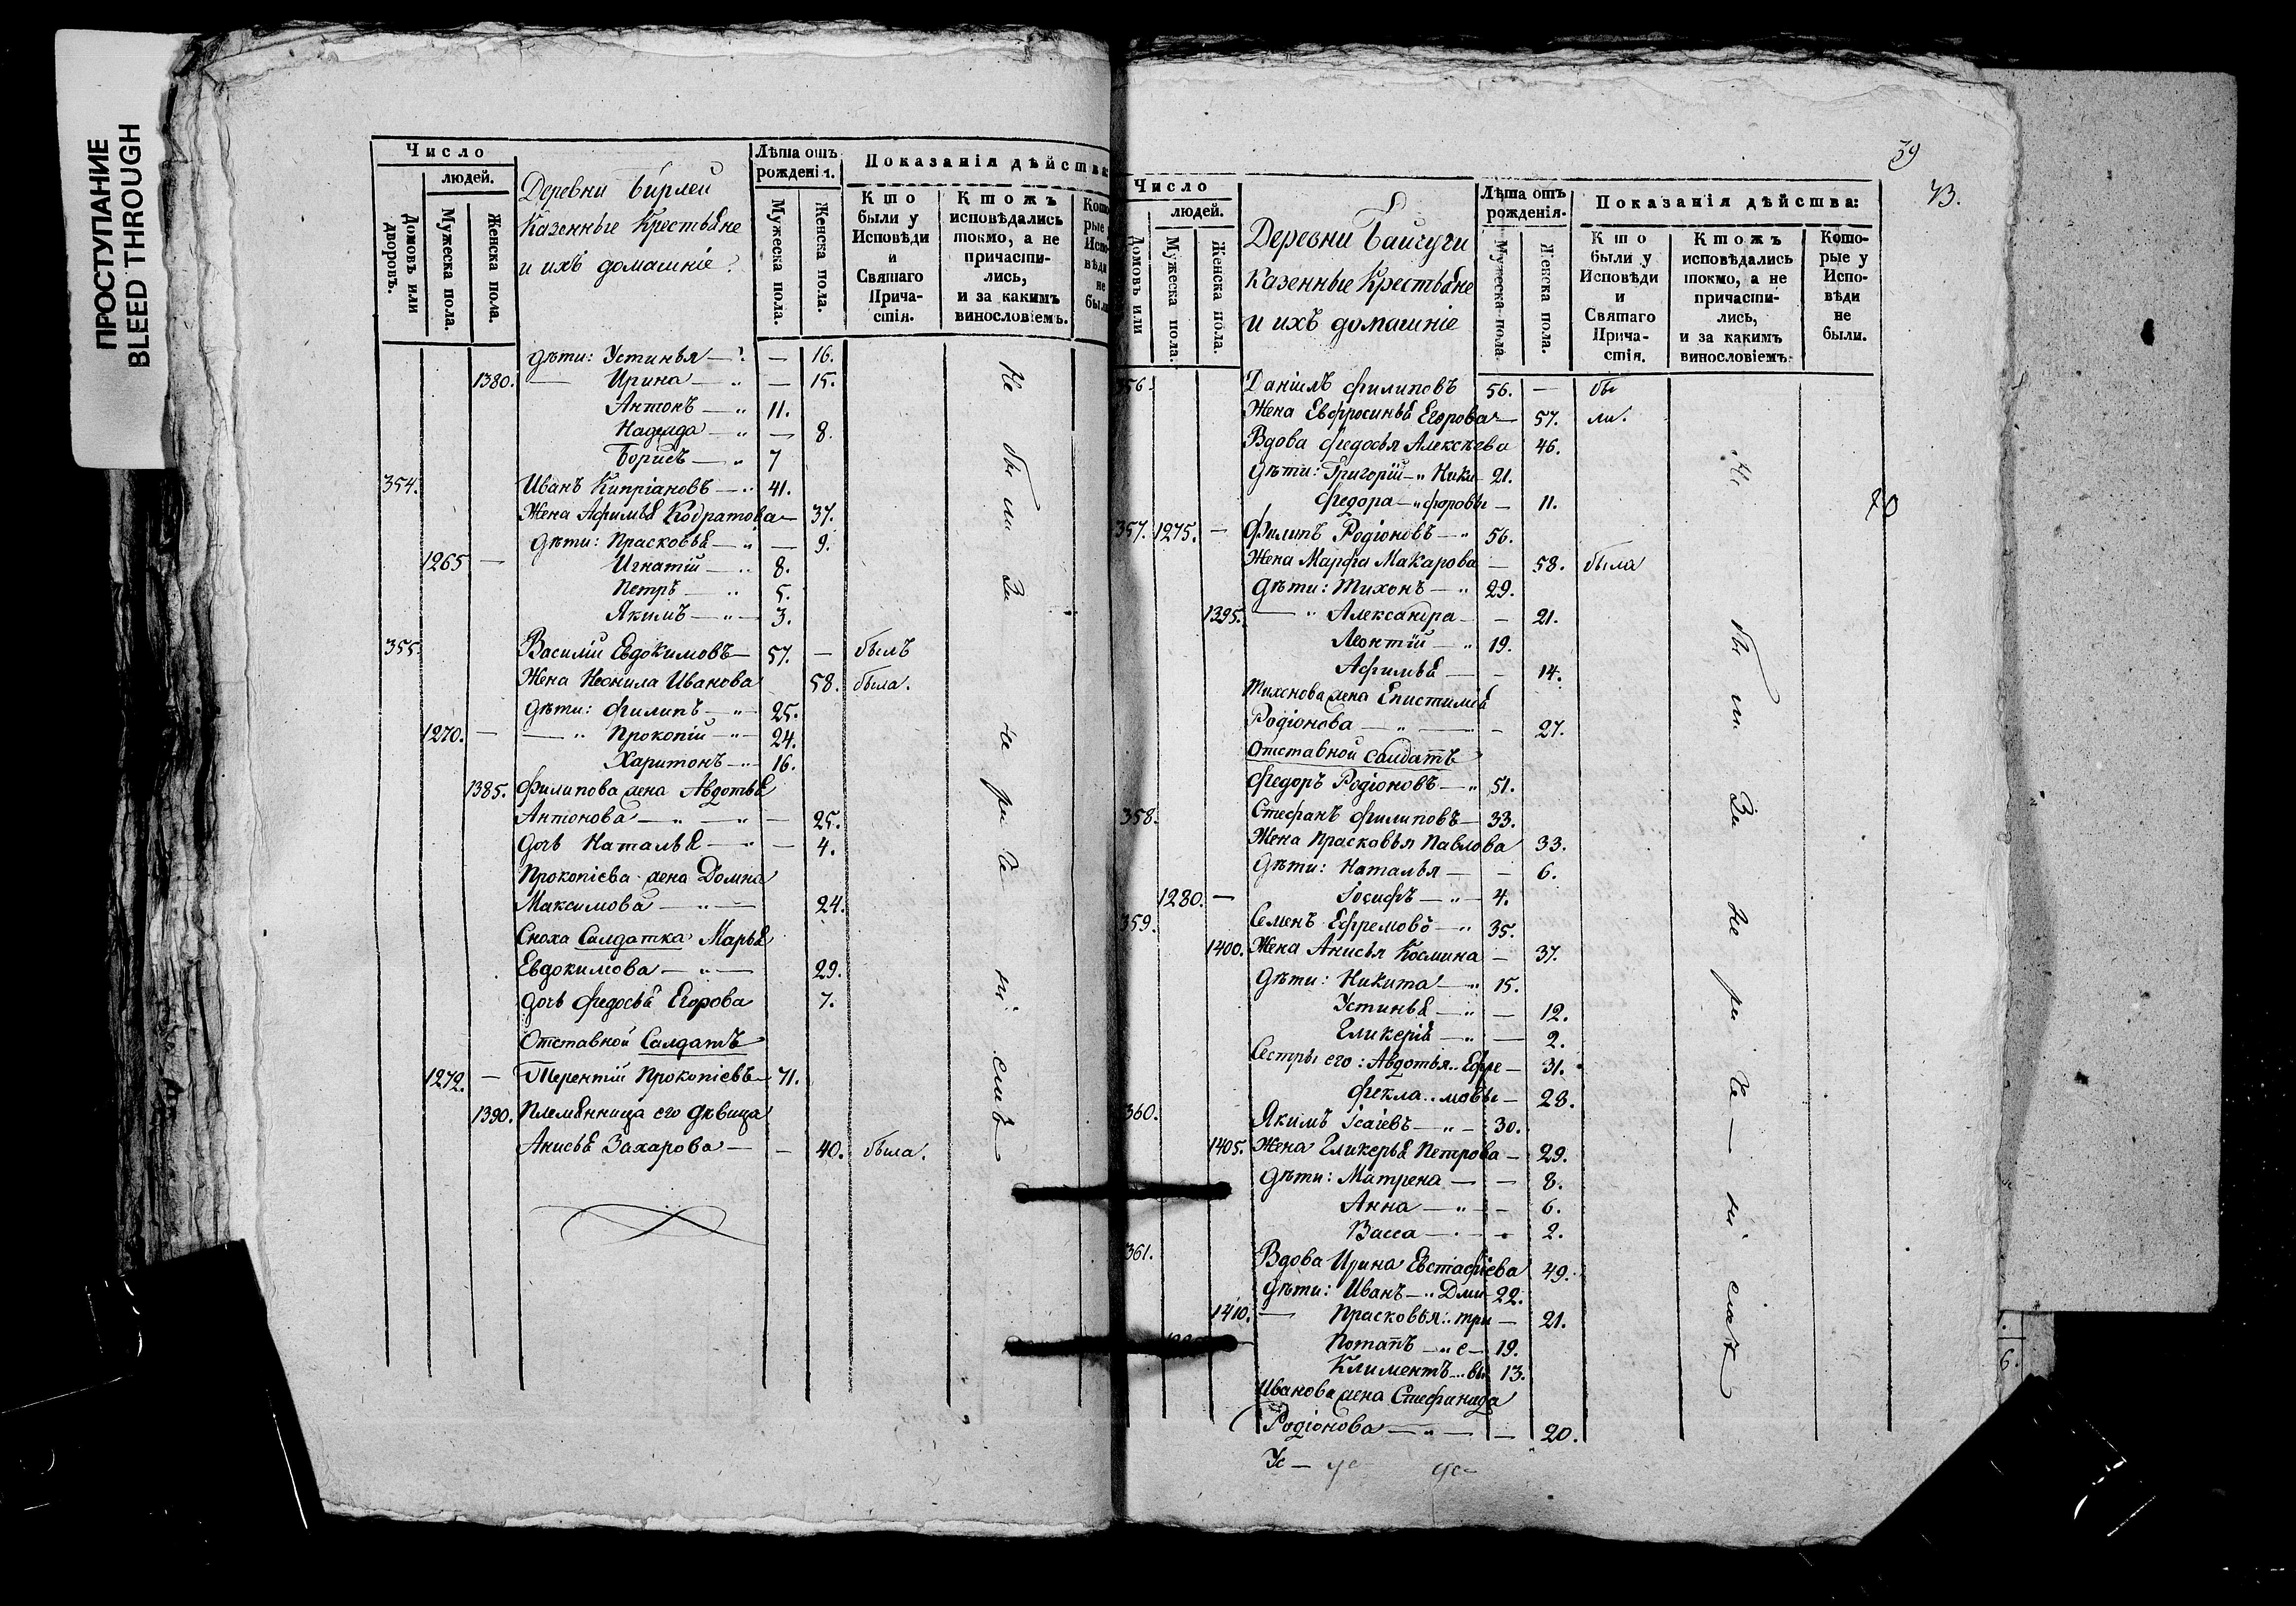 ПРОСТУПАНИЕ
BLEED THROUGH
Число
людей.
Домовъ или дворовъ.
Мужеска пола.
Женска пола.
Деревни Бирлеи
Казенные Крестьяне
и ихъ домашніе
Лѣта отъ рожденія.
Мужеска пола.
Женска пола.
Показанія дѣйства
Кто были у Исповѣди и Святаго Причастія.
Ктожъ исповѣдались токмо, а не причастились, и за какимъ винословіемъ.
дѣти: Устинья — — 16.
1380. — Ирина — „ — 15.
Антонъ — „ 11.
Надежда — „ — 8.
Борисъ — „ 7
354. Иванъ Кипріановъ — „ 41.
Жена Афимья Кодратова — 37.
дѣти: Прасковья — „ — 9.
1265 — Игнатій — „ 8.
Петръ — „ 5.
Якимъ — „ — 3.
355. Василій Евдокимовъ — 57. — былъ
Жена Неонила Иванова 58. была.
дѣти: Филипъ — „ — 25.
1270. — — „ Прокопій — „ — 24.
Харитонъ — „ — 16.
1385. Филипова жена Авдотья
Антонова — „ — „ — — 25.
дочь Наталья — „ — 4.
Прокопіева жена Домна
Максимова — „ — 24.
Сноха Салдатка Марья
Евдокимова — „ — 29.
дочь Федосья Егорова 7.
Отставной Салдатъ
1272. — Терентій Прокопіевъ — 71.
1390. Племянница его дѣвица
Анисья Захарова — — 40. была.
39
43.
Число
людей.
Домовъ или
Мужеска пола.
Женска пола.
Деревни Байчуги
Казенные Крестьяне
и ихъ домашніе
Лѣта отъ рожденія.
Мужеска пола
Женска пола.
Показанія дѣйства:
Кто были у Исповѣди и Святаго Причастія.
Ктожъ исповѣдались токмо, а не причастились, и за какимъ винословіемъ.
Которые у Исповѣди не были.
356. Даніилъ Филиповъ 56. — бы
Жена Евфросинья Егорова — 57. ли.
Вдова Федосья Алексѣева 46.
дѣти: Григорій — „ Ники 21.
Федора — „ форовы — 11.
357. 1275. — Филипъ Родіоновъ — „ 56.
Жена Марфа Макарова — 58. была
дѣти: Тихонъ — „ 29.
1395. — „ Александра — — 21.
Леонтій — „ 19.
Афимья — — 14.
Тихонова жена Епистимія
Родіонова — „ — — 27.
Отставной Салдатъ
Федоръ Родіоновъ — „ 51.
358. Стефанъ Филиповъ — 33.
Жена Прасковья Павлова 33.
дѣти: Наталья — — 6.
1280. — Іосифъ — „ — 4.
359. Семенъ Ефремовъ — „ 35.
1400. Жена Анисья Космина — 37.
дѣти: Никита — „ 15.
Устинья — „ — 12.
Гликерія — „ — 2.
Сестры его: Авдотья „ Ефре — 31.
Фекла „ мовы — 28.
360. Якимъ Ісаіевъ — „ — 30.
1405. Жена Гликерья Петрова — 29.
дѣти: Матрена — — 8.
Анна — „ — 6.
Васса — 2.
361. Вдова Ирина Евстафіева 49.
дѣти: Иванъ — „ Дми 22.
1410. — Прасковья „ трі — 21.
Потапъ — „ е — 19.
Климентъ „ вы 13.
Иванова жена Стефанида
Родіонова — „ — — 20.